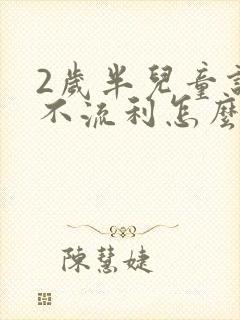 2歲半兒童
不流利怎麼
陳慧婕